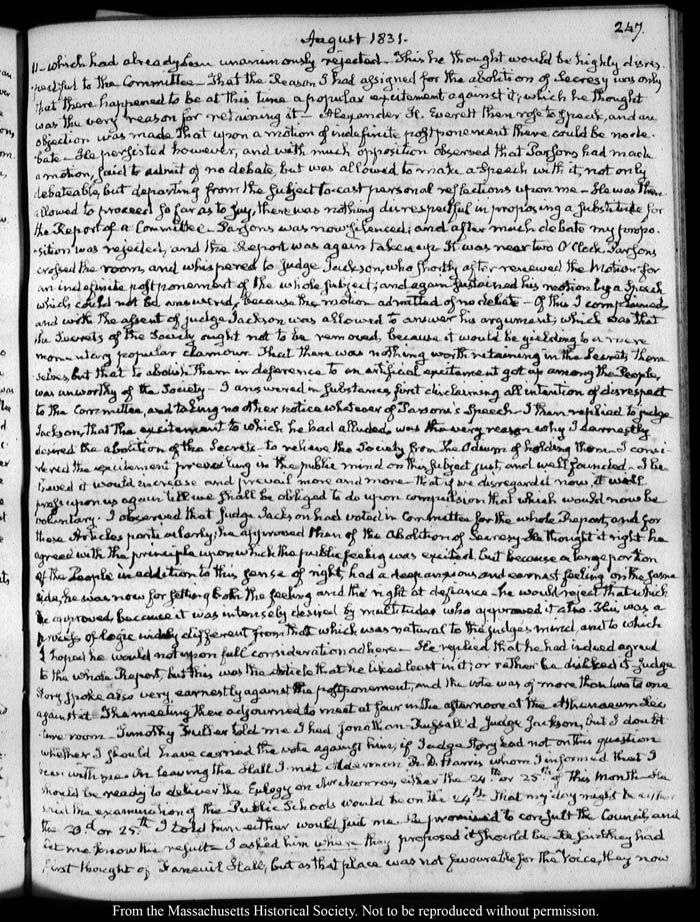 247
August 1831.
11– which had already been unanimously rejected– This he thought would be highly disres-
pectful to the Committee– That the Reason I had assigned for the abolition of Secresy was only
that there happened to be at this time a popular excitement against it; which he thought
was the very reason for retaining it– Alexander H. Everett then rose to speak, and an
objection was made that upon a motion of indefinite postponement there could be no de-
bate– He persisted however, and with much opposition observed that Parsons had made
a motion, said to admit of no debate, but was allowed to make a Speech with it, not only
debateable, but departing from the subject to cast personal reflections upon me– He was then
allowed to proceed so far as to say, there was nothing disrespectful in proposing a substitute for
the Report of a Committee– Parsons was now silenced; and after much debate my propo-
sition was rejected, and the Report was again taken up– It was near two O'Clock– Parsons
crossed the room, and whispered to Judge Jackson, who shortly after renewed the Motion for
an indefinite postponement of the whole subject; and again sustained his motion by a Speech
which could not be answered, because the motion admitted of no debate– Of this I complained
and with the assent of judge Jackson was allowed to answer his argument; which was that
the Secrets of the Society ought not to be removed, because it would be yielding to a mere
momentary popular clamour– That there was nothing worth retaining in the Secrets them-
selves, but that to abolish them in deference to an artificial excitement got up among the People,
was unworthy of the Society– I answered in substance, first disclaiming all intention of disrespect
to the Committee, and taking no other notice whatever of Parsons's Speech– I then replied to judge
Jackson, that the excitement to which he had alluded, was the very reason why I earnestly
desired the abolition of the Secrets– to relieve the Society from the Odium of holding them– I consi-
dered the excitement prevailing in the public mind on this subject just, and well founded– I be-
lieved it would increase and prevail more and more– that if we disregard it now, it will
press upon us again till we shall be obliged to do upon compulsion that which would now be
voluntary. I observed that Judge Jackson had voted in Committee for the whole Report, and for
those Articles particularly; he approved then of the Abolition of Secresy– He thought it right– he
agreed with the principle upon which the public feeling was excited, but because a large portion
of the People in addition to this sense of right, had a deep anxious and earnest feeling on the same
side, he was now for setting both the feeling and the right at defiance– he would reject that which
he approved, because it was intensely desired by multitudes who approved it also. This was a
process of logic widely different from that which was natural to the judge's mind, and to which
I hoped he would not upon full consideration adhere– He replied that he had indeed agreed
to the whole Report, but this was the Article that he liked least in it; or rather he disliked it– Judge
Story spoke also very earnestly against the postponement, and the vote was of more than two to one
against it– The meeting then adjourned to meet at four in the afternoon at the Athenaeum Lec-
ture room– Timothy Fuller told me I had Jonathan Russell'd Judge Jackson, but I doubt
whether I should have carried the vote against him, if Judge Story had not on this question
been with me. On leaving the Hall I met Alderman Dr. D. Harris whom I informed that I
should be ready to deliver the Eulogy on Mr Monroe, either the 24th. or 25th. of this Month– He
said the examination of the Public Schools would be on the 24th. That my day might be either
the 23d. or 25th. I told him either would suit me– He promised to consult the Council, and
let me know the result– I asked him where they proposed it should be– He said they had
first thought of Faneuil Hall; but as that place was not favourable for the Voice, they now
From the Massachusetts Historical Society. Not to be reproduced without permission.